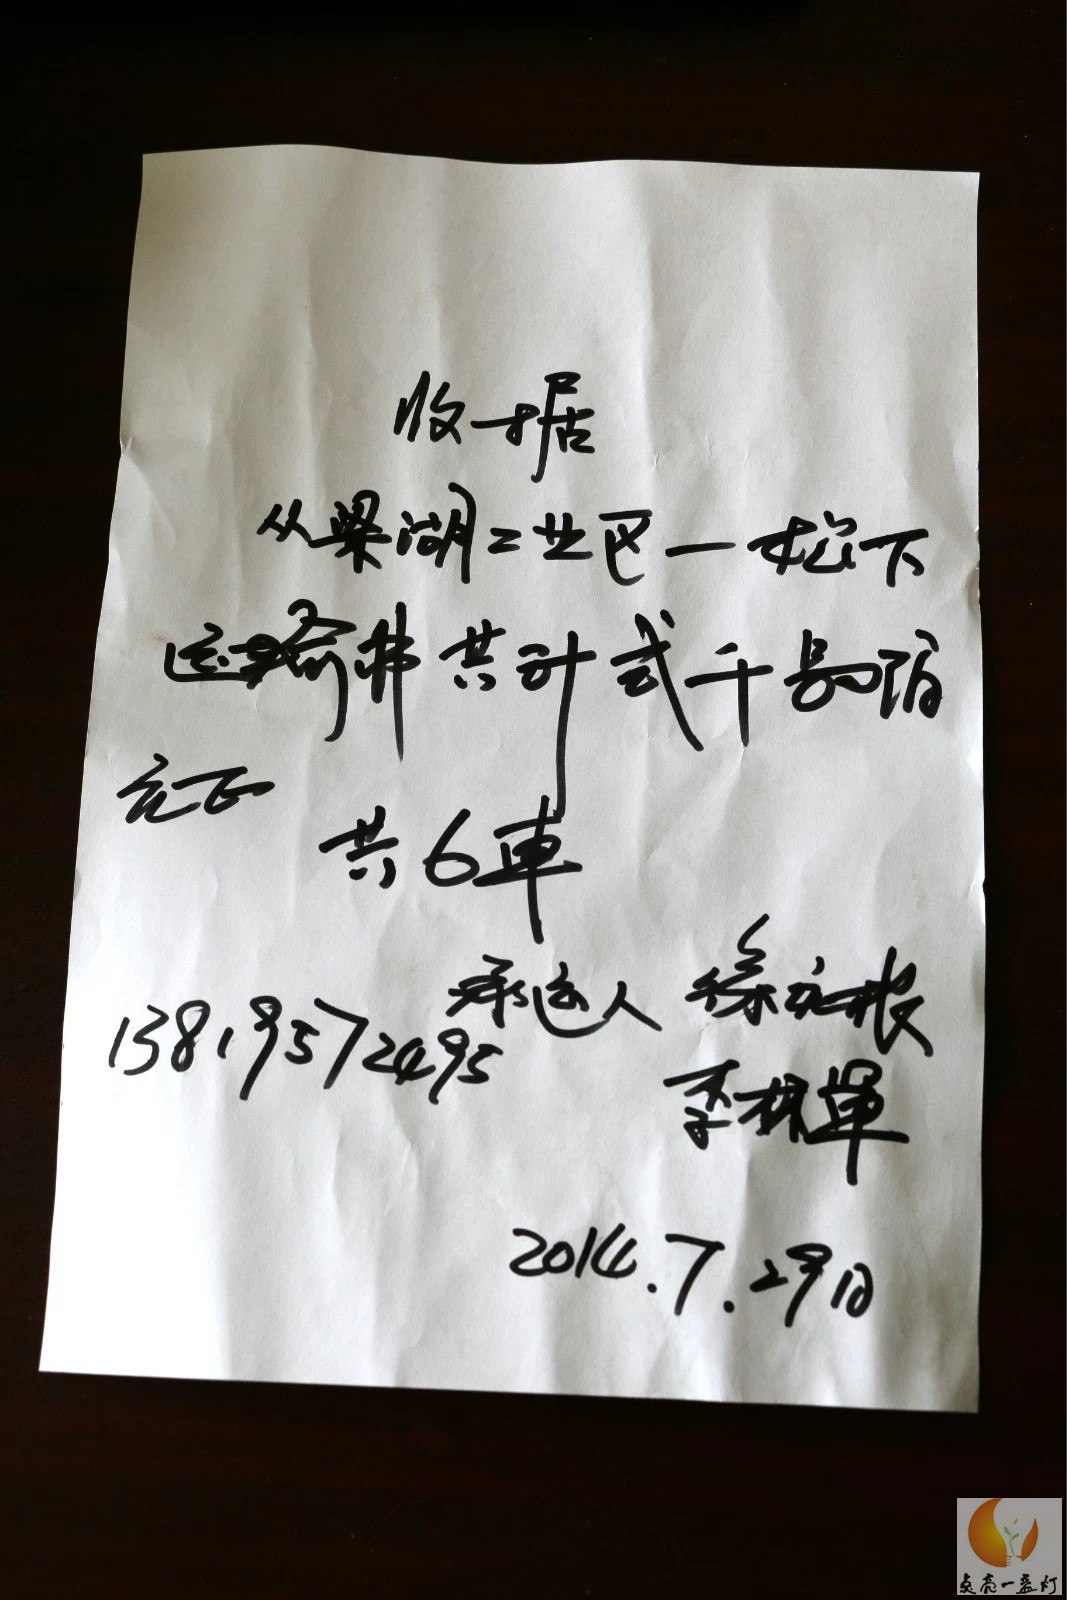 收据
从梁湖工业区一松下
运输费共计弍千
元正
共6車
承运人 徐
13819572495
李林軍
2014.7.29日
点亮一盏灯